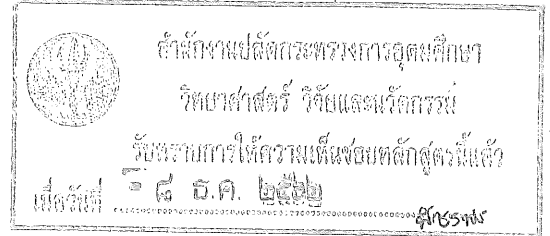 สำนักงานปลัดกระทรวงการอุดมศึกษา
วิทยาศาสตร์ วิจัยและนวัตกรรม
รับทราบการให้ความเห็นชอบหลักสูตรนี้แล้ว
เมื่อวันที่ - ๔ ธ.ค. ๒๕๖๒